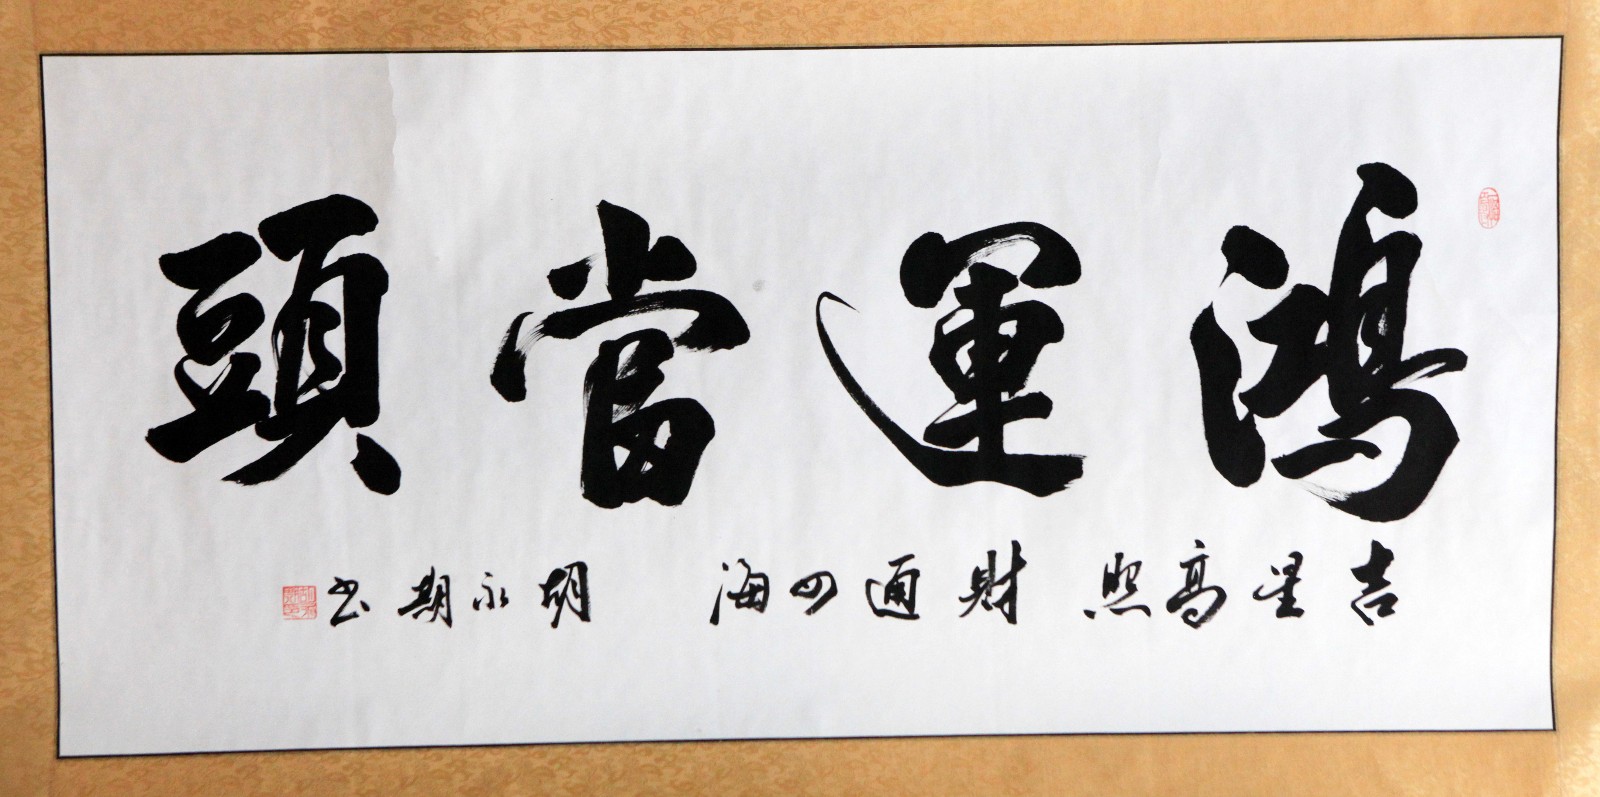 鴻運當頭
吉星高照 財通四海 胡永期書